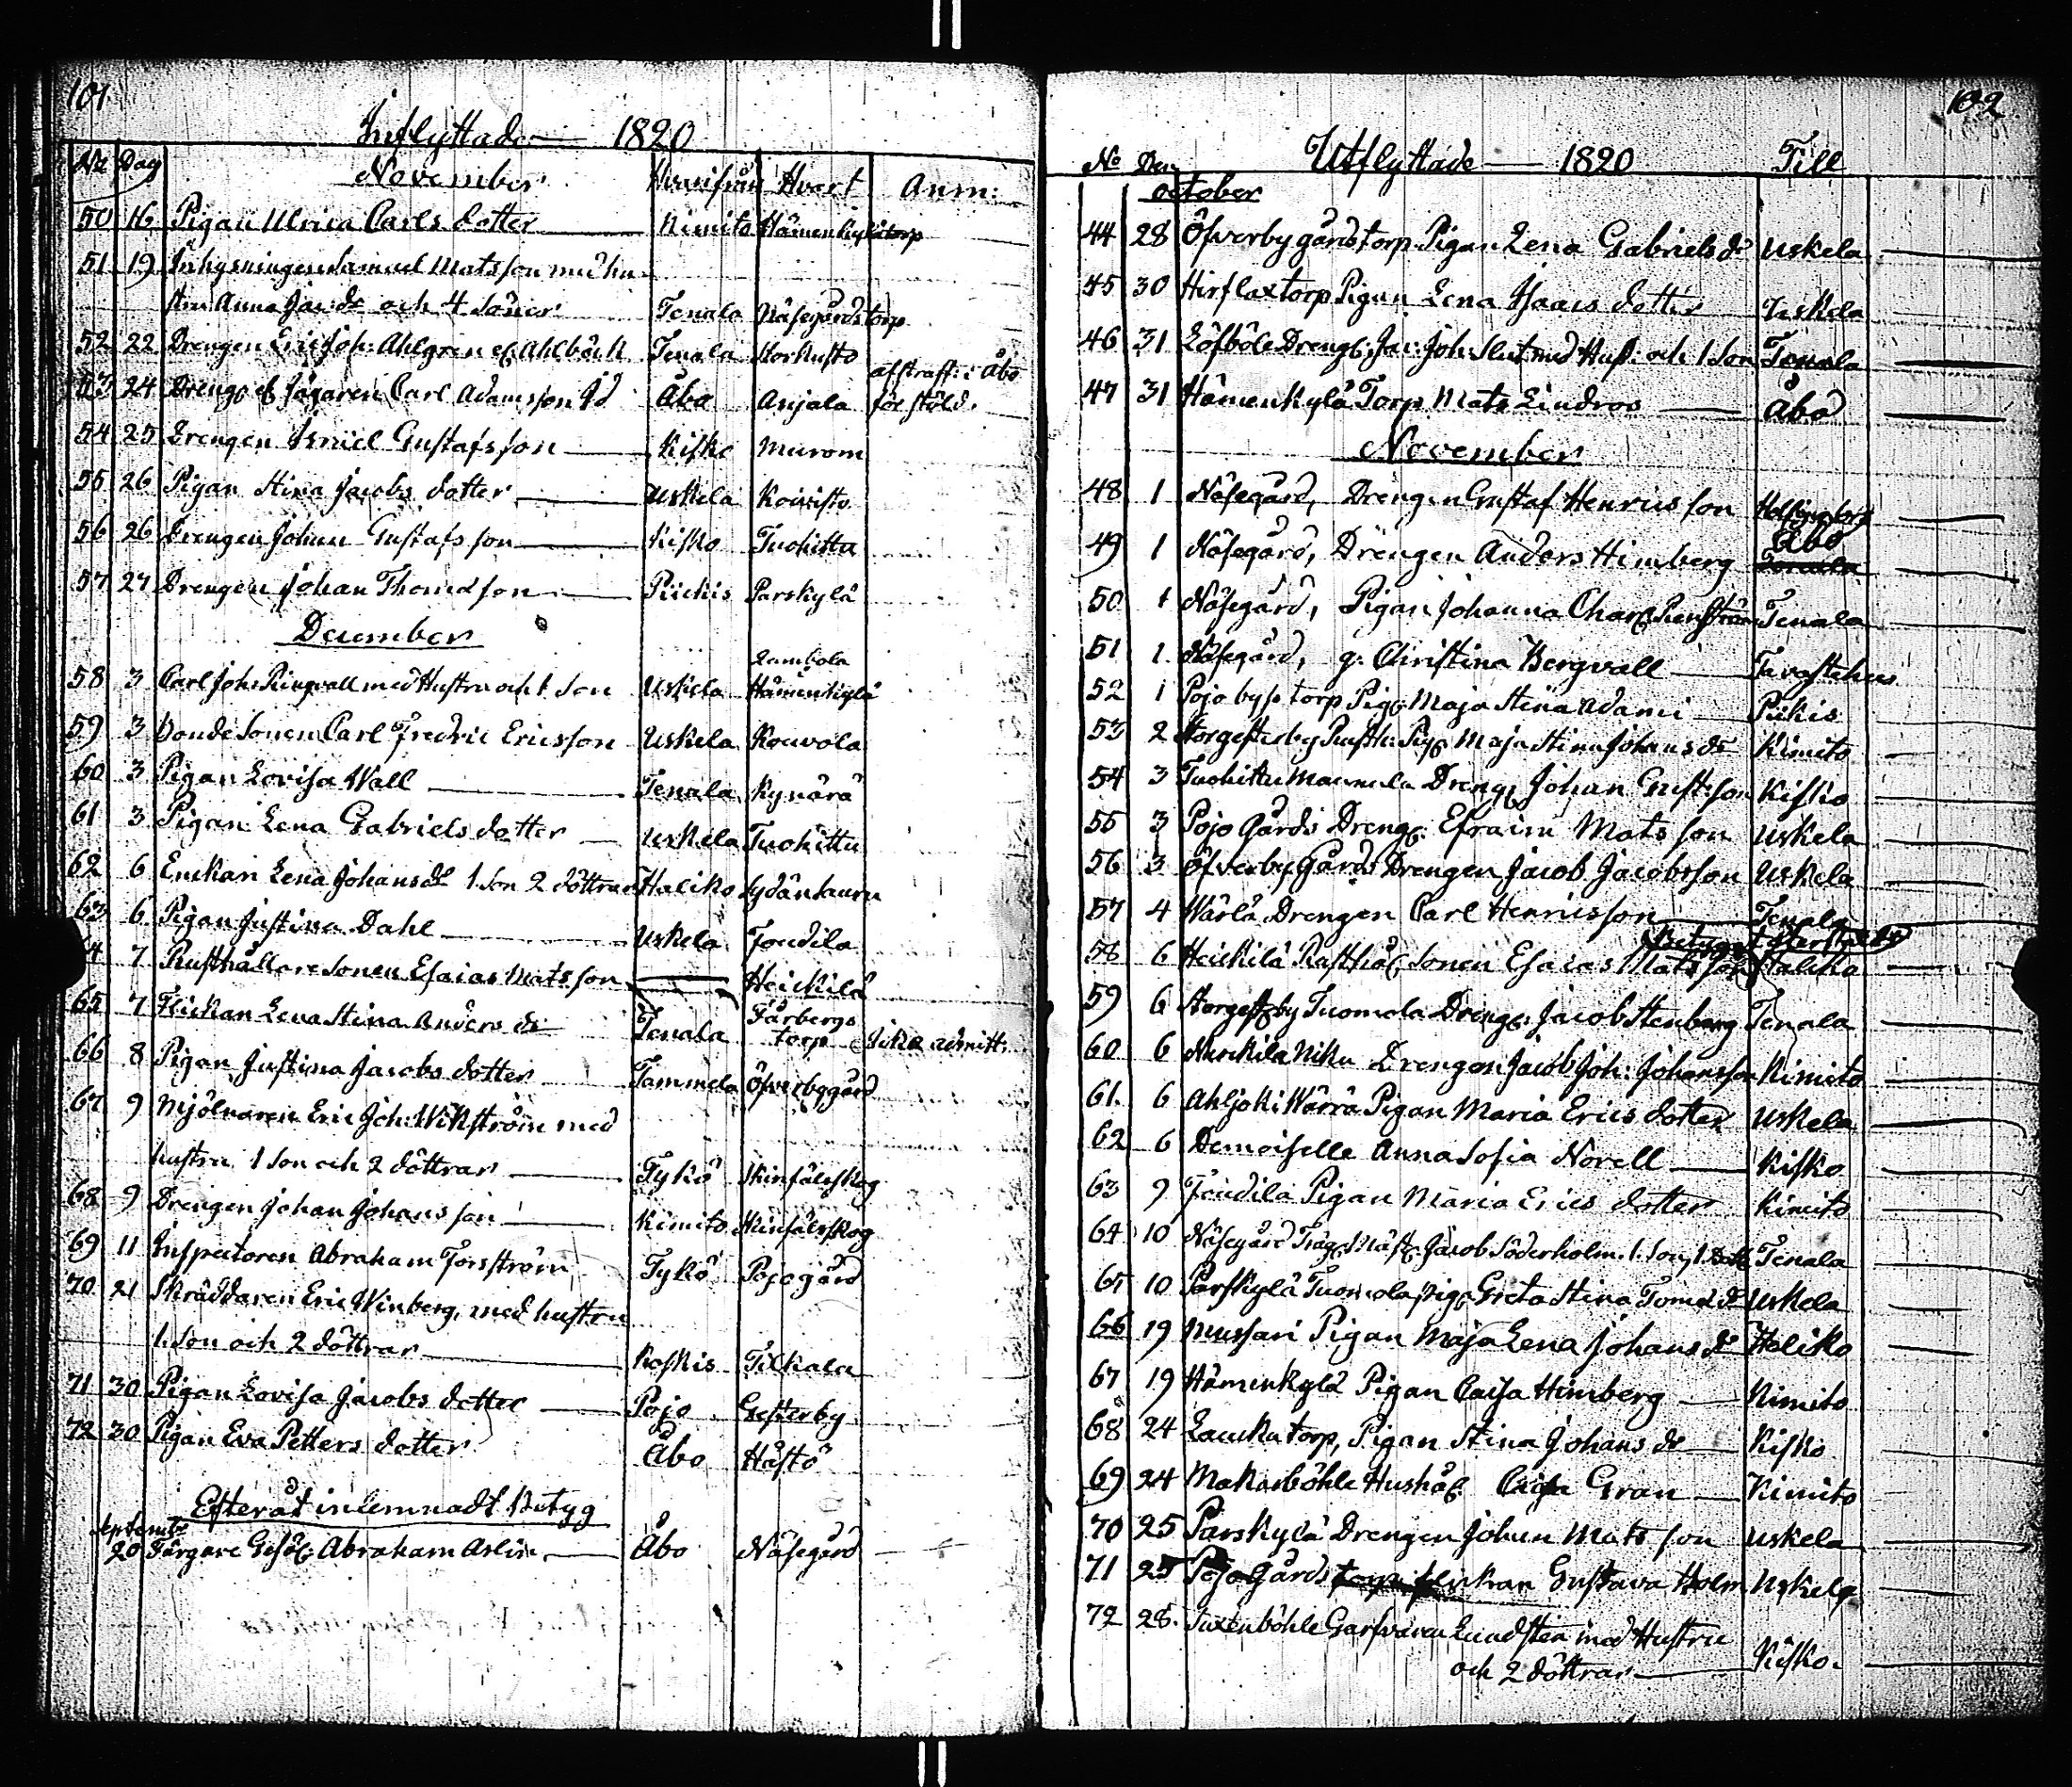 101
Inflyttade — 1820
No Dag November Hvarifrån Hvart Anm:
50 16 Pigan Ulrica Carls dotter — Kimito Hämenkylätorp
51 19 Inhysningen Samuel Matsson med hu-
stru Anna Jac: dr och 4 Söner Tenala Näsegårdstorp
52 22 Drengen Eric Joh: Ahlgren el. Ahlbäck Tenala Korkusto
53 24 Dreng: el. Jägaren Carl Adamsson Åbo Anjala afstraff: i Åbo för stöld.
54 25 Drengen Isräel Gustafsson — Kisko Murom
55 26 Pigan Stina Jacobs dotter — Uskela Koivisto
56 26 Drengen Johan Gustafsson — Kisko Tuohittu
57 27 Drengen Johan Thomasson — Piickis Parskylä
December
58 3 Carl Joh: Ringvall med Hustru och 1 Son Uskela Lambola Hämenkylä
59 3 Bonde Sonen Carl Fredric Ericsson Uskela Kouvola
60 3 Pigan Lovisa Wall — Tenala Kynärä
61 3 Pigan Lena Gabriels dotter — Uskela Tuohittu
62 6 Enckan Lena Johans dr 1 Son 2 döttrar Haliko Sydänlauru
63 6 Pigan Justina Dahl — Uskela Joudila
64 7 Rusthållare Sonen Esaias Matsson — Heickilä
65 7 Flickan Lena Stina Anders dr Tenala Färbergs torp Icke admitt:
66 8 Pigan Justina Jacobs dotter — Tammela Öfverbygård
67 9 Mjölnaren Eric Joh: Wikström med
hustru 1 Son och 2 döttrar — Tykö Skinfälsskog
68 9 Drengen Johan Johansson — Kimito Skinfälsskog
69 11 Inspectoren Abraham Forsström Tykö Pojogård
70 21 Skräddaren Eric Winberg, med hustru
1. Son och 2 döttrar — Koskis Tilkala
71 30 Pigan Lovisa Jacobs dotter — Pojo Gesterby
72 30 Pigan Eva Petters dotter Åbo Håstö
Efteråt inlemnadt Betyg
Septemb:
20 Färgare Gesäl: Abraham Aslin — Åbo Näsegård
102
No Dag Utflyttade — 1820 Till
October
44 28 Öfverby gårds torp Pigan Lena Gabriels dr Uskela
45 30 Hirflax torp Pigan Lena Isaacs dotter Uskela
46 31 Löfböle Dreng: Jac: Joh: Slut med Hust: och 1 Son Tenala
47 31 Hämenkylä Torp Mats Lindros — Åbo
November
48 1 Näsegård, Drengen Gustaf Henricsson Helsingfors
49 1 Näsegård, Drengen Anders Himberg Åbo
50 1 Näsegård, Pigan Johanna Charl: Renström Tenala
51 1 Näsegård, g: Christina Bergvall — Tavastehus
52 1 Pojo by: torp Pig: Maja Stina Adami — Piikis
53 2 Norgesterby Rusth: Pig: Maja Stina Johans dr Kimito
54 3 Tuohittu Mannela Dreng: Johan Gustsson Kisko
55 3 Pojo Gårds Dreng: Efraim Matsson Uskela
56 3 Öfverby Gårds Drengen Jacob Jacobsson Uskela
57 4 Wärlä Drengen Carl Henricsson — Tenala
58 6 Heickilä Rusthål: Sonen Esaias Matsson Haliko
59 6 Norgesterby Tuomola Dreng: Jacob Stenberg Tenala
60 6 Nurckila Niku Drengen Jacob Joh: Johansson Kimito
61. 6 Ahljoki Wärrä Pigan Maria Erics dotter Uskela
62 6 Demoiselle Anna Sofia Norell — Kisko
63 9 Joudila Pigan Maria Erics dotter Kimito
64 10 Näsegård Träg: Mäst: Jacob Söderholm. 1. Son, 1. Dott: Tenala
65 10 Parskylä Tuomola Pig: Greta Stina Tomas dr Uskela
66 19 Mussari Pigan Maja Lena Johans dr Haliko
67 19 Hämenkylä Pigan Caisa Himberg — Kimito
68 24 Laucka torp, Pigan Stina Johans dr — Kisko
69 24 Makarböhle Hushål: Caisa Gran — Kimito
70 25 Parskylä Drengen Johan Matsson Uskela
71 25 Pojo Gårds torp flickan Gustava Holm Uskela
72 28. Tuxenböhle Garfvaren Lundsten med Hustru
och 2 döttrar — Kisko.